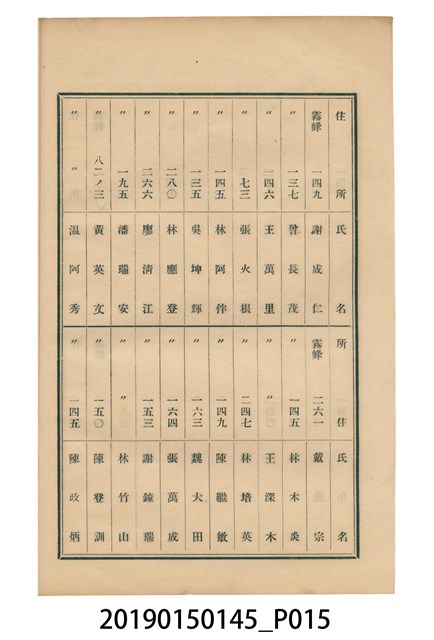 住所 氏名
霧峰 一四九 謝成仁
〃 一三七 曾長茂
〃 二四六 王萬里
〃 七三 張火根
〃 一四五 林阿伴
〃 一三五 吳坤輝
〃 二八〇 林應登
〃 二六六 廖清江
〃 一九五 潘瑞安
〃 八二ノ三 黃英文
〃 〃 温阿秀
所住 氏名
霧峰 二六一 戴宗
〃 一四五 林木炎
〃 〃 王深木
〃 二四七 林培英
〃 一四九 陳繼敏
〃 一六三 魏大田
〃 一六四 張萬成
〃 一五三 謝鐘瑞
〃 〃 林竹山
〃 一五〇 陳登訓
〃 一四五 陳政炳
20190150145_P015